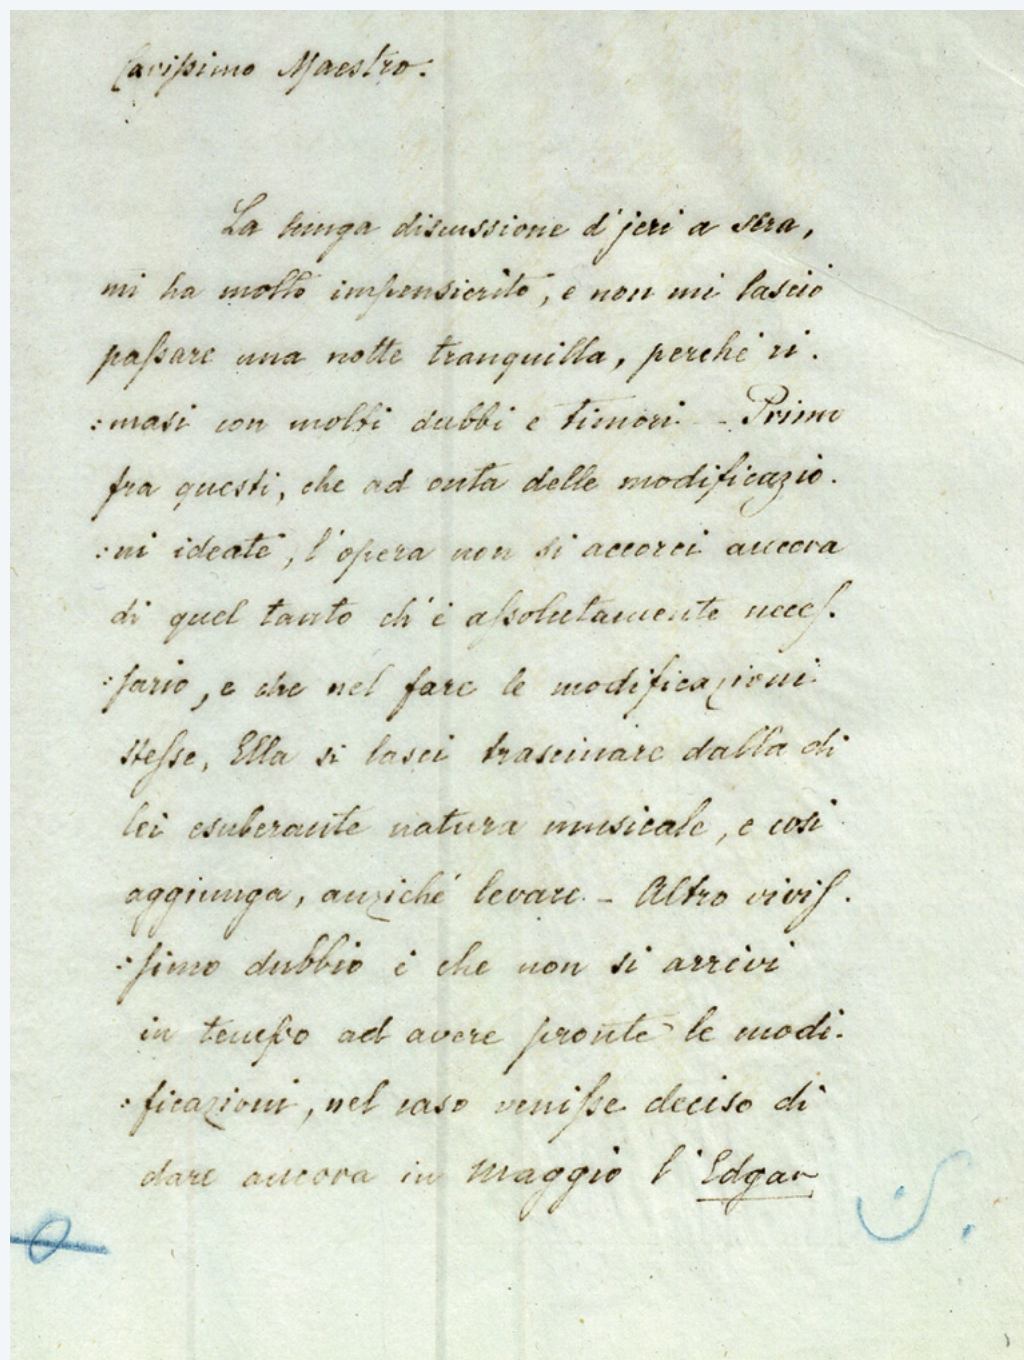 Carissimo Maestro.
La lunga discussione d'jeri a sera,
mi ha molto impensierito, e non mi lasciò
passare una notte tranquilla, perchè ri.
:masi con molti dubbi e timori - Primo
fra questi, che ad onta delle modificazio.
:ni ideate, l'opera non si accorci ancora
di quel tanto ch'è assolutamente neces.
:sario, e che nel fare le modificazioni
stesse, Ella si lasci trascinare dalla di
lei esuberante natura musicale, e così
aggiunga, anzichè levare. - Altro vivis.
:simo dubbio è che non si arrivi
in tempo ad avere pronte le modi.
:ficazioni, nel caso venisse deciso di
dare ancora in Maggio l'Edgar